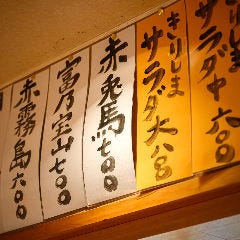 きりしま
サラダ中六〇〇
きりしま
サラダ大八〇
赤兎馬七〇〇
富乃宝山七〇〇
赤霧島六〇〇